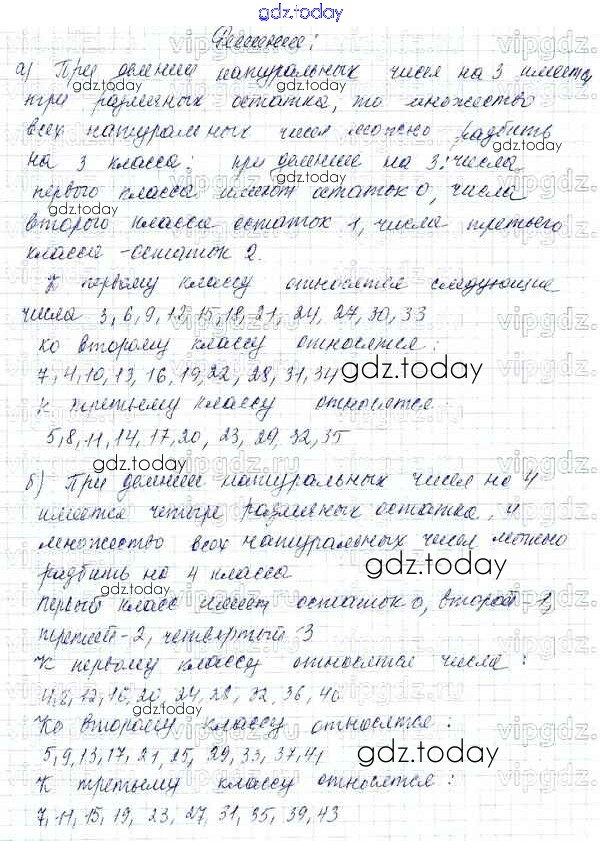 gdz.today
Решение:
а) При делении натуральных чисел на 3 имеется
три различных остатка, то множество
всех натуральных чисел можно разбить
на 3 класса: при делении на 3: числа
первого класса имеют остаток 0, числа
второго класса остаток 1, числа третьего
класса - остаток 2.
К первому классу относятся следующие
числа 3, 6, 9, 12, 15, 18, 21, 24, 27, 30, 33
ко второму классу относятся:
7, 4, 10, 13, 16, 19, 22, 28, 31, 34
К третьему классу относятся:
5, 8, 11, 14, 17, 20, 23, 29, 32, 35
б) При делении натуральных чисел на 4
имеется четыре различных остатка, и
множество всех натуральных чисел можно
разбить на 4 класса
Первый класс имеет остаток 0, второй - 1,
третий - 2, четвертый - 3
К первому классу относятся числа:
4, 8, 12, 16, 20, 24, 28, 32, 36, 40
Ко второму классу относятся:
5, 9, 13, 17, 21, 25, 29, 33, 37, 41
К третьему классу относятся:
7, 11, 15, 19, 23, 27, 31, 35, 39, 43